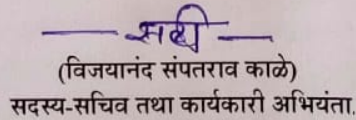 — सही —
(विजयानंद संपतराव काळे)
सदस्य-सचिव तथा कार्यकारी अभियंता.